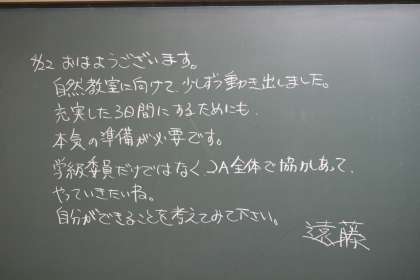 4/22 おはようございます。
自然教室に向けて、少しずつ動き出しました。
充実した3日間にするためにも、
本気の準備が必要です。
学級委員だけではなく、2A全体で協力しあって、
やっていきたいね。
自分ができることを考えてみて下さい。
遠藤